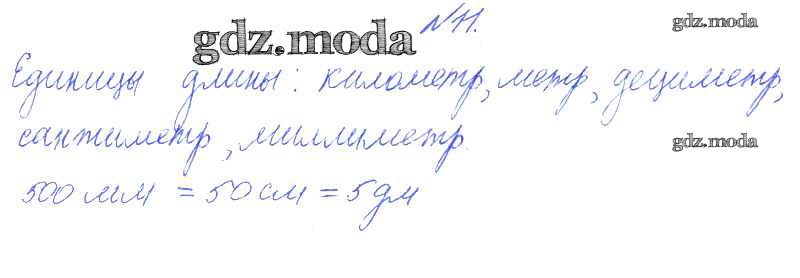 №11.
gdz.moda
gdz.moda
Единицы длины: километр, метр, дециметр,
сантиметр, миллиметр.
gdz.moda
500 мм = 50 см = 5 дм